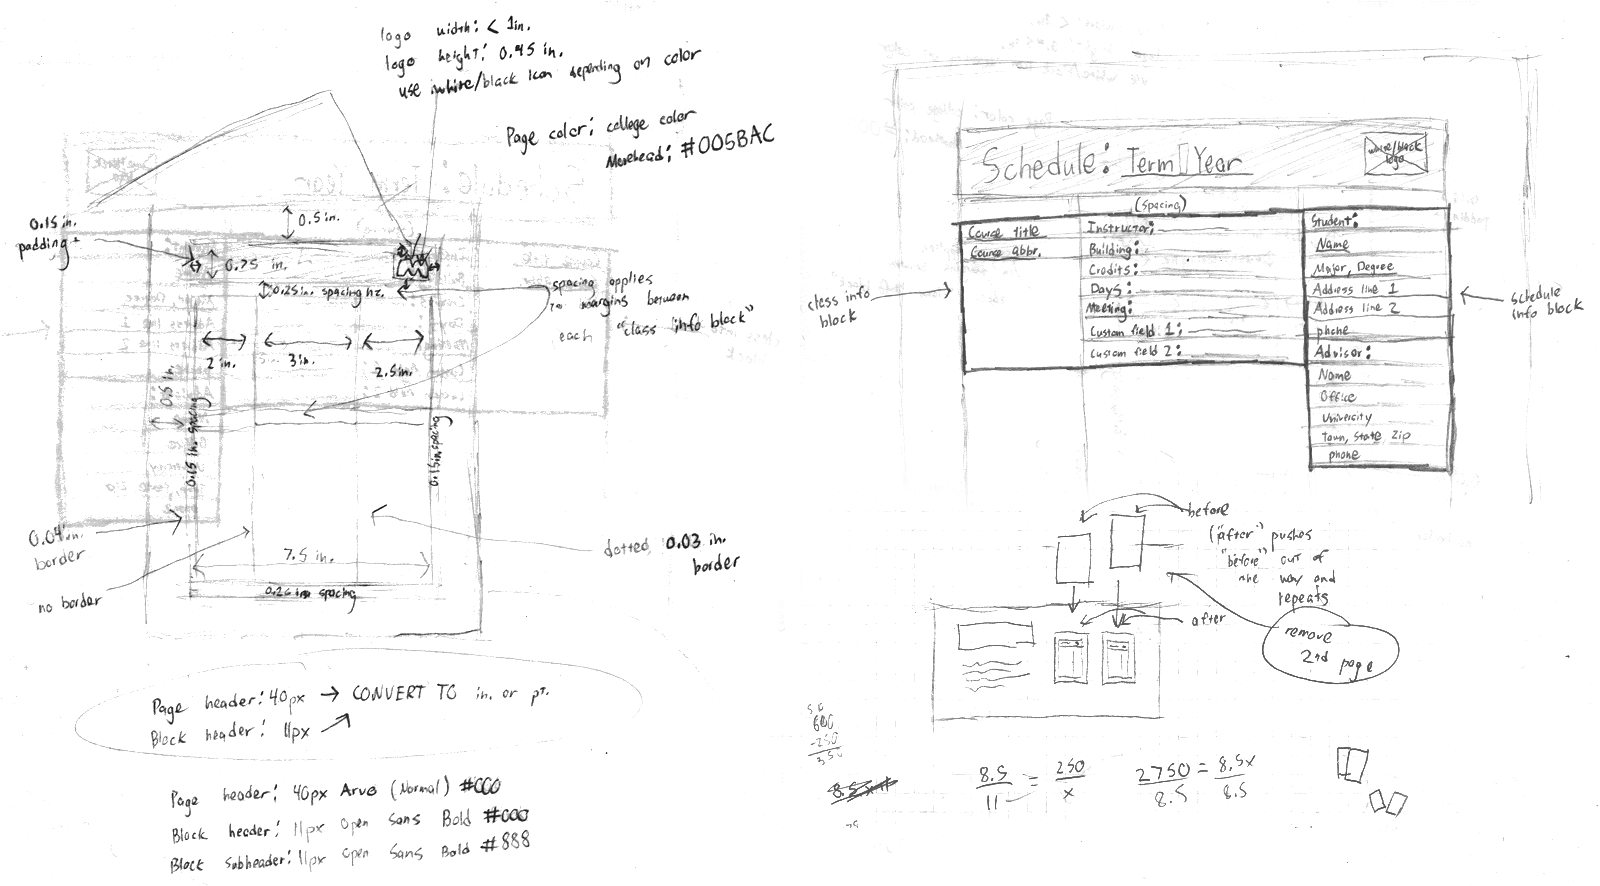 logo width: < 1in.
logo height: 0.45 in.
use white/black icon depending on color
Page color: college color
Morehead: #005BAC
0.15 in.
padding
0.5 in.
0.75 in.
0.25in. spacing
spacing applies
to margins between
each "class info block"
2 in.
3in.
2.5in.
0.5 in.
0.15 in. spacing
0.15in. spacing
0.04 in.
border
no border
7.5 in.
0.26 in. spacing
dotted 0.03 in.
border
Page header: 40px → CONVERT TO in. or pt.
Block header: 11px
Page header: 40px Arvo (Normal) #000
Block header: 11px Open Sans Bold #000
Block subheader: 11px Open Sans Bold #888
Schedule: Term Year
white/black
logo
(spacing)
Course title
Course abbr.
Instructor:
Building:
Credits:
Days:
Meeting:
Custom field 1:
Custom field 2:
Student:
Name
Major, Degree
Address line 1
Address line 2
phone
Advisor:
Name
Office
University
Town, State Zip
phone
class info
block
schedule
info block
before
("after" pushes
"before" out of
the way and
repeats
after
remove
2nd page
600
-250
350
8.5/11 = 250/x
2750/8.5 = 8.5x/8.5